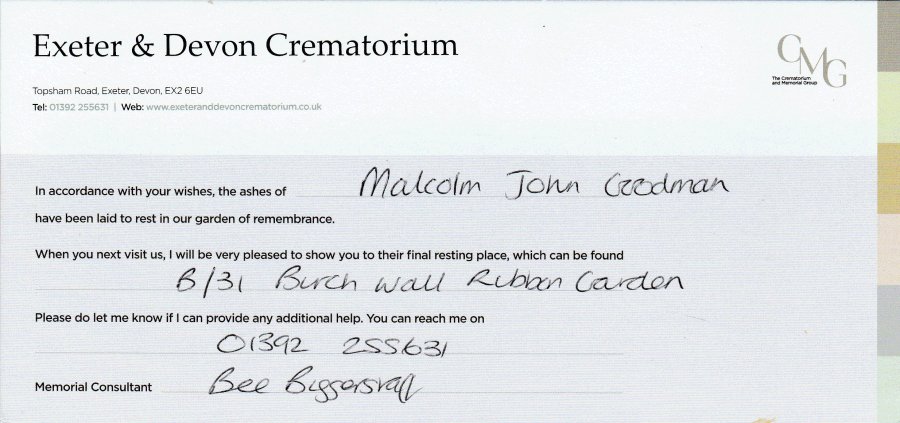 Exeter & Devon Crematorium
CMG
The Crematorium
and Memorial Group
Topsham Road, Exeter, Devon, EX2 6EU
Tel: 01392 255631 | Web: www.exeteranddevoncrematorium.co.uk
In accordance with your wishes, the ashes of Malcolm John Goodman
have been laid to rest in our garden of remembrance.
When you next visit us, I will be very pleased to show you to their final resting place, which can be found
B/31 Birch Wall Ribbon Garden
Please do let me know if I can provide any additional help. You can reach me on
01392 255631
Memorial Consultant Bee Biggerstaff